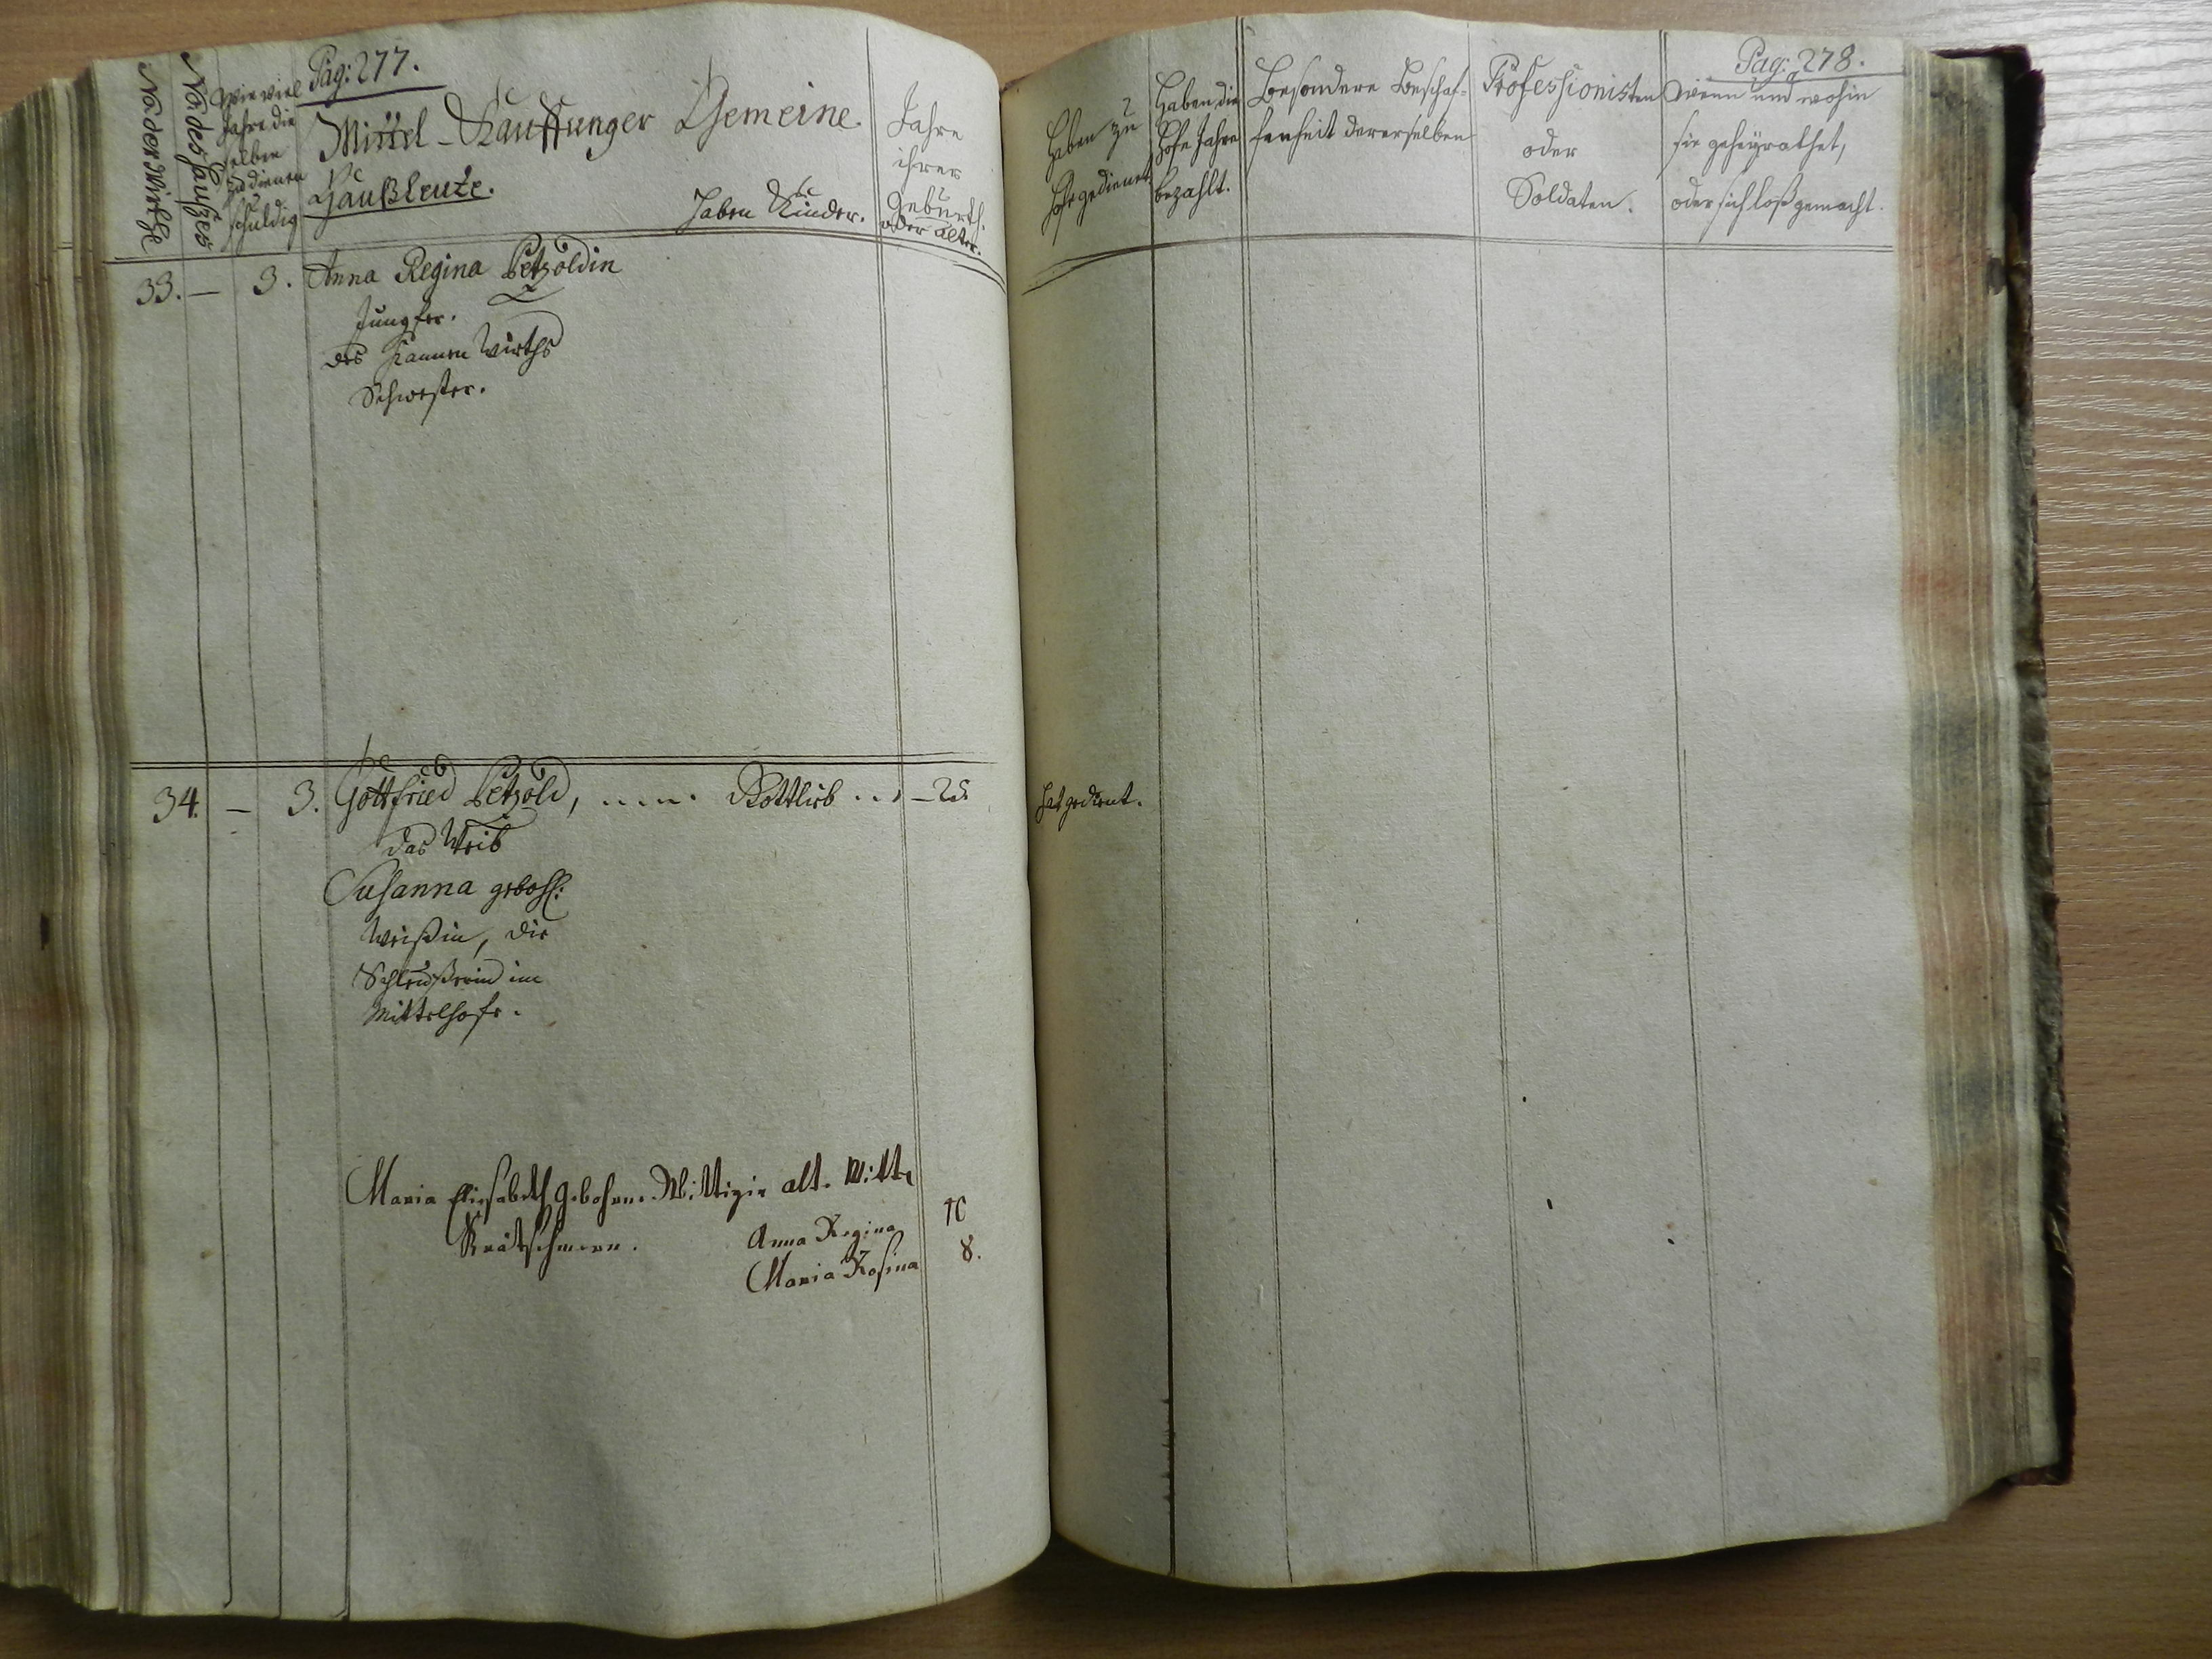 Pag: 277.
No der Wirthe
No des Haußes
Wie viel
Jahre die
selben
zu dienen
schuldig
Mittel-Kauffunger Gemeine.
Haußleute.
Haben Kinder.
Jahre
ihrer
Geburth.
oder Alter.
33. — 3. Anna Regina Petzoldin
Jungfer.
des Hannen Wirths
Schwester.
34. — 3. Gottfried Petzold, ..... Gottlieb ... — 25.
das Weib
Susanna gebohr:
Weißin, die
Schleußerin im
Mittelhofe.
Maria Elisabeth gebohrn. Wittigin alt. Mittl
Kretschmern.
Anna Regina 10
Maria Rosina 8.
Pag: 278.
Haben zu
Hofe gedienet
Haben die
Hofe Jahre
bezahlt.
Besondere Beschaf-
fenheit dererselben
Professionisten
oder
Soldaten.
Wenn und wohin
sie geheyrathet,
oder sich loß gemacht.
Hat gedient.